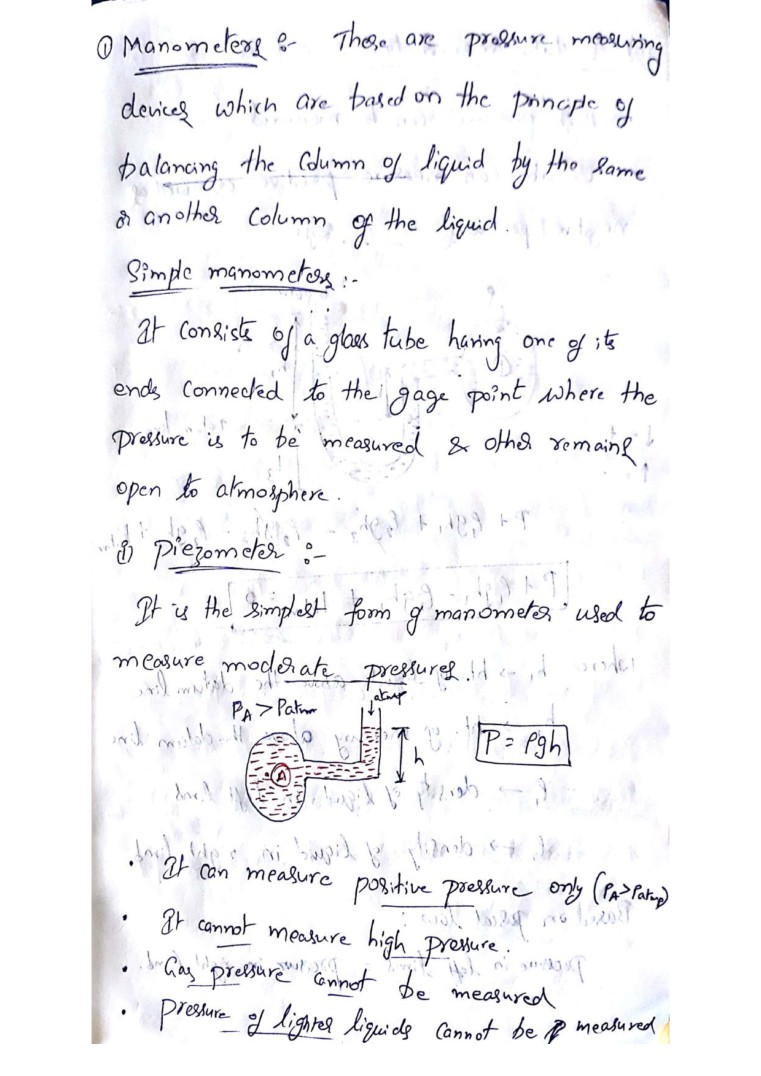 ① Manometers :- These are pressure measuring
devices which are based on the principle of
balancing the column of liquid by the same
or another column of the liquid.
Simple manometers :-
It consists of a glass tube having one of its
ends connected to the gage point where the
pressure is to be measured & other remains
open to atmosphere.
i) Piezometer :-
It is the simplest form of manometer used to
measure moderate pressures.
PA > Patm
atmp
A
h
P = ρgh
• It can measure positive pressure only (PA > Patmp)
• It cannot measure high pressure.
• Gas pressure cannot be measured
• Pressure of lighter liquids cannot be measured